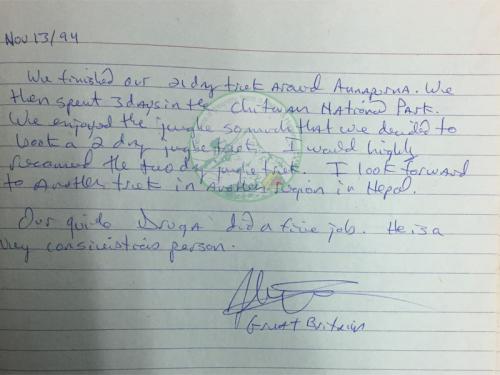 Nov 13/94
We finished our 21 day trek around Annapurna. We
then spent 3 days in the Chitwan National Park.
We enjoyed the jungle so much that we decided to
book a 2 day jungle trek. I would highly
recommend the two day jungle trek. I look forward
to another trek in another region in Nepal.
Our guide Druga did a fine job. He is a
very person.
Great Britain